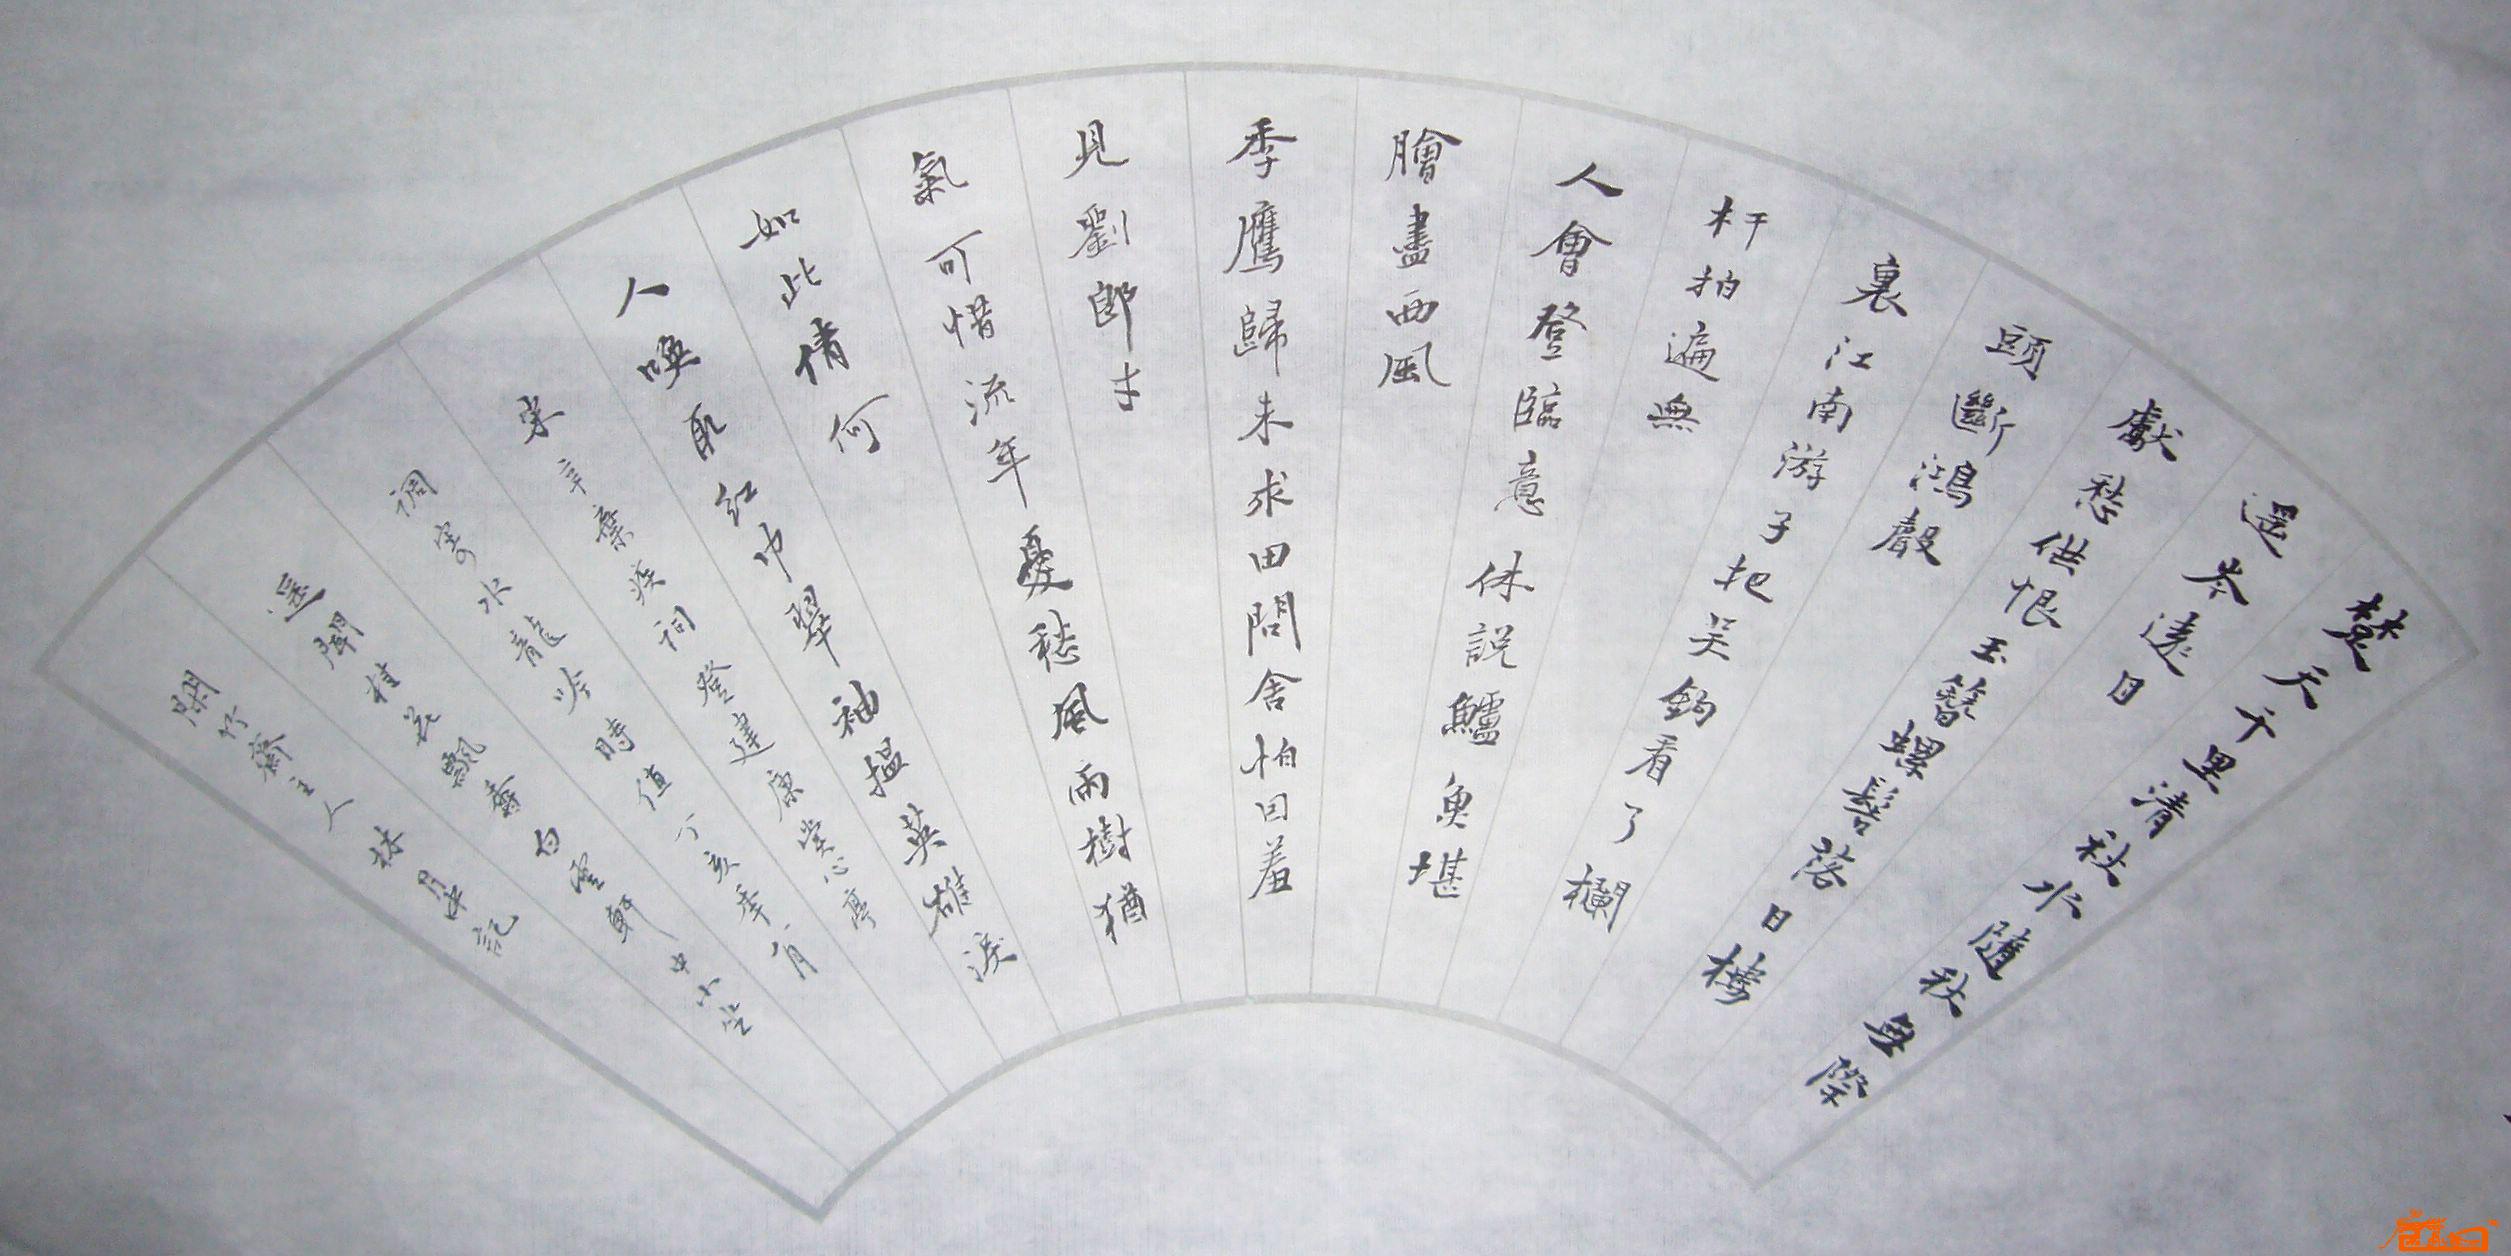 楚天千里清秋水隨秋無際
遥岑遠目
獻愁供恨玉簪螺髻落日樓
頭斷鴻聲
裏江南游子把吴鈎看了欄
杆拍遍無
人會登臨意休説鱸魚堪
膾盡西風
季鷹歸未求田問舍怕曰羞
見劉郎才
氣可惜流年憂愁風雨樹猶
如此倩何
人唤取紅巾翠袖揾英雄淚
宋辛棄疾词登建康赏心亭
调寄水龍吟時值丁亥年八月
遥聞桂花飄香白雲軒中小坐
閑竹齋主人林